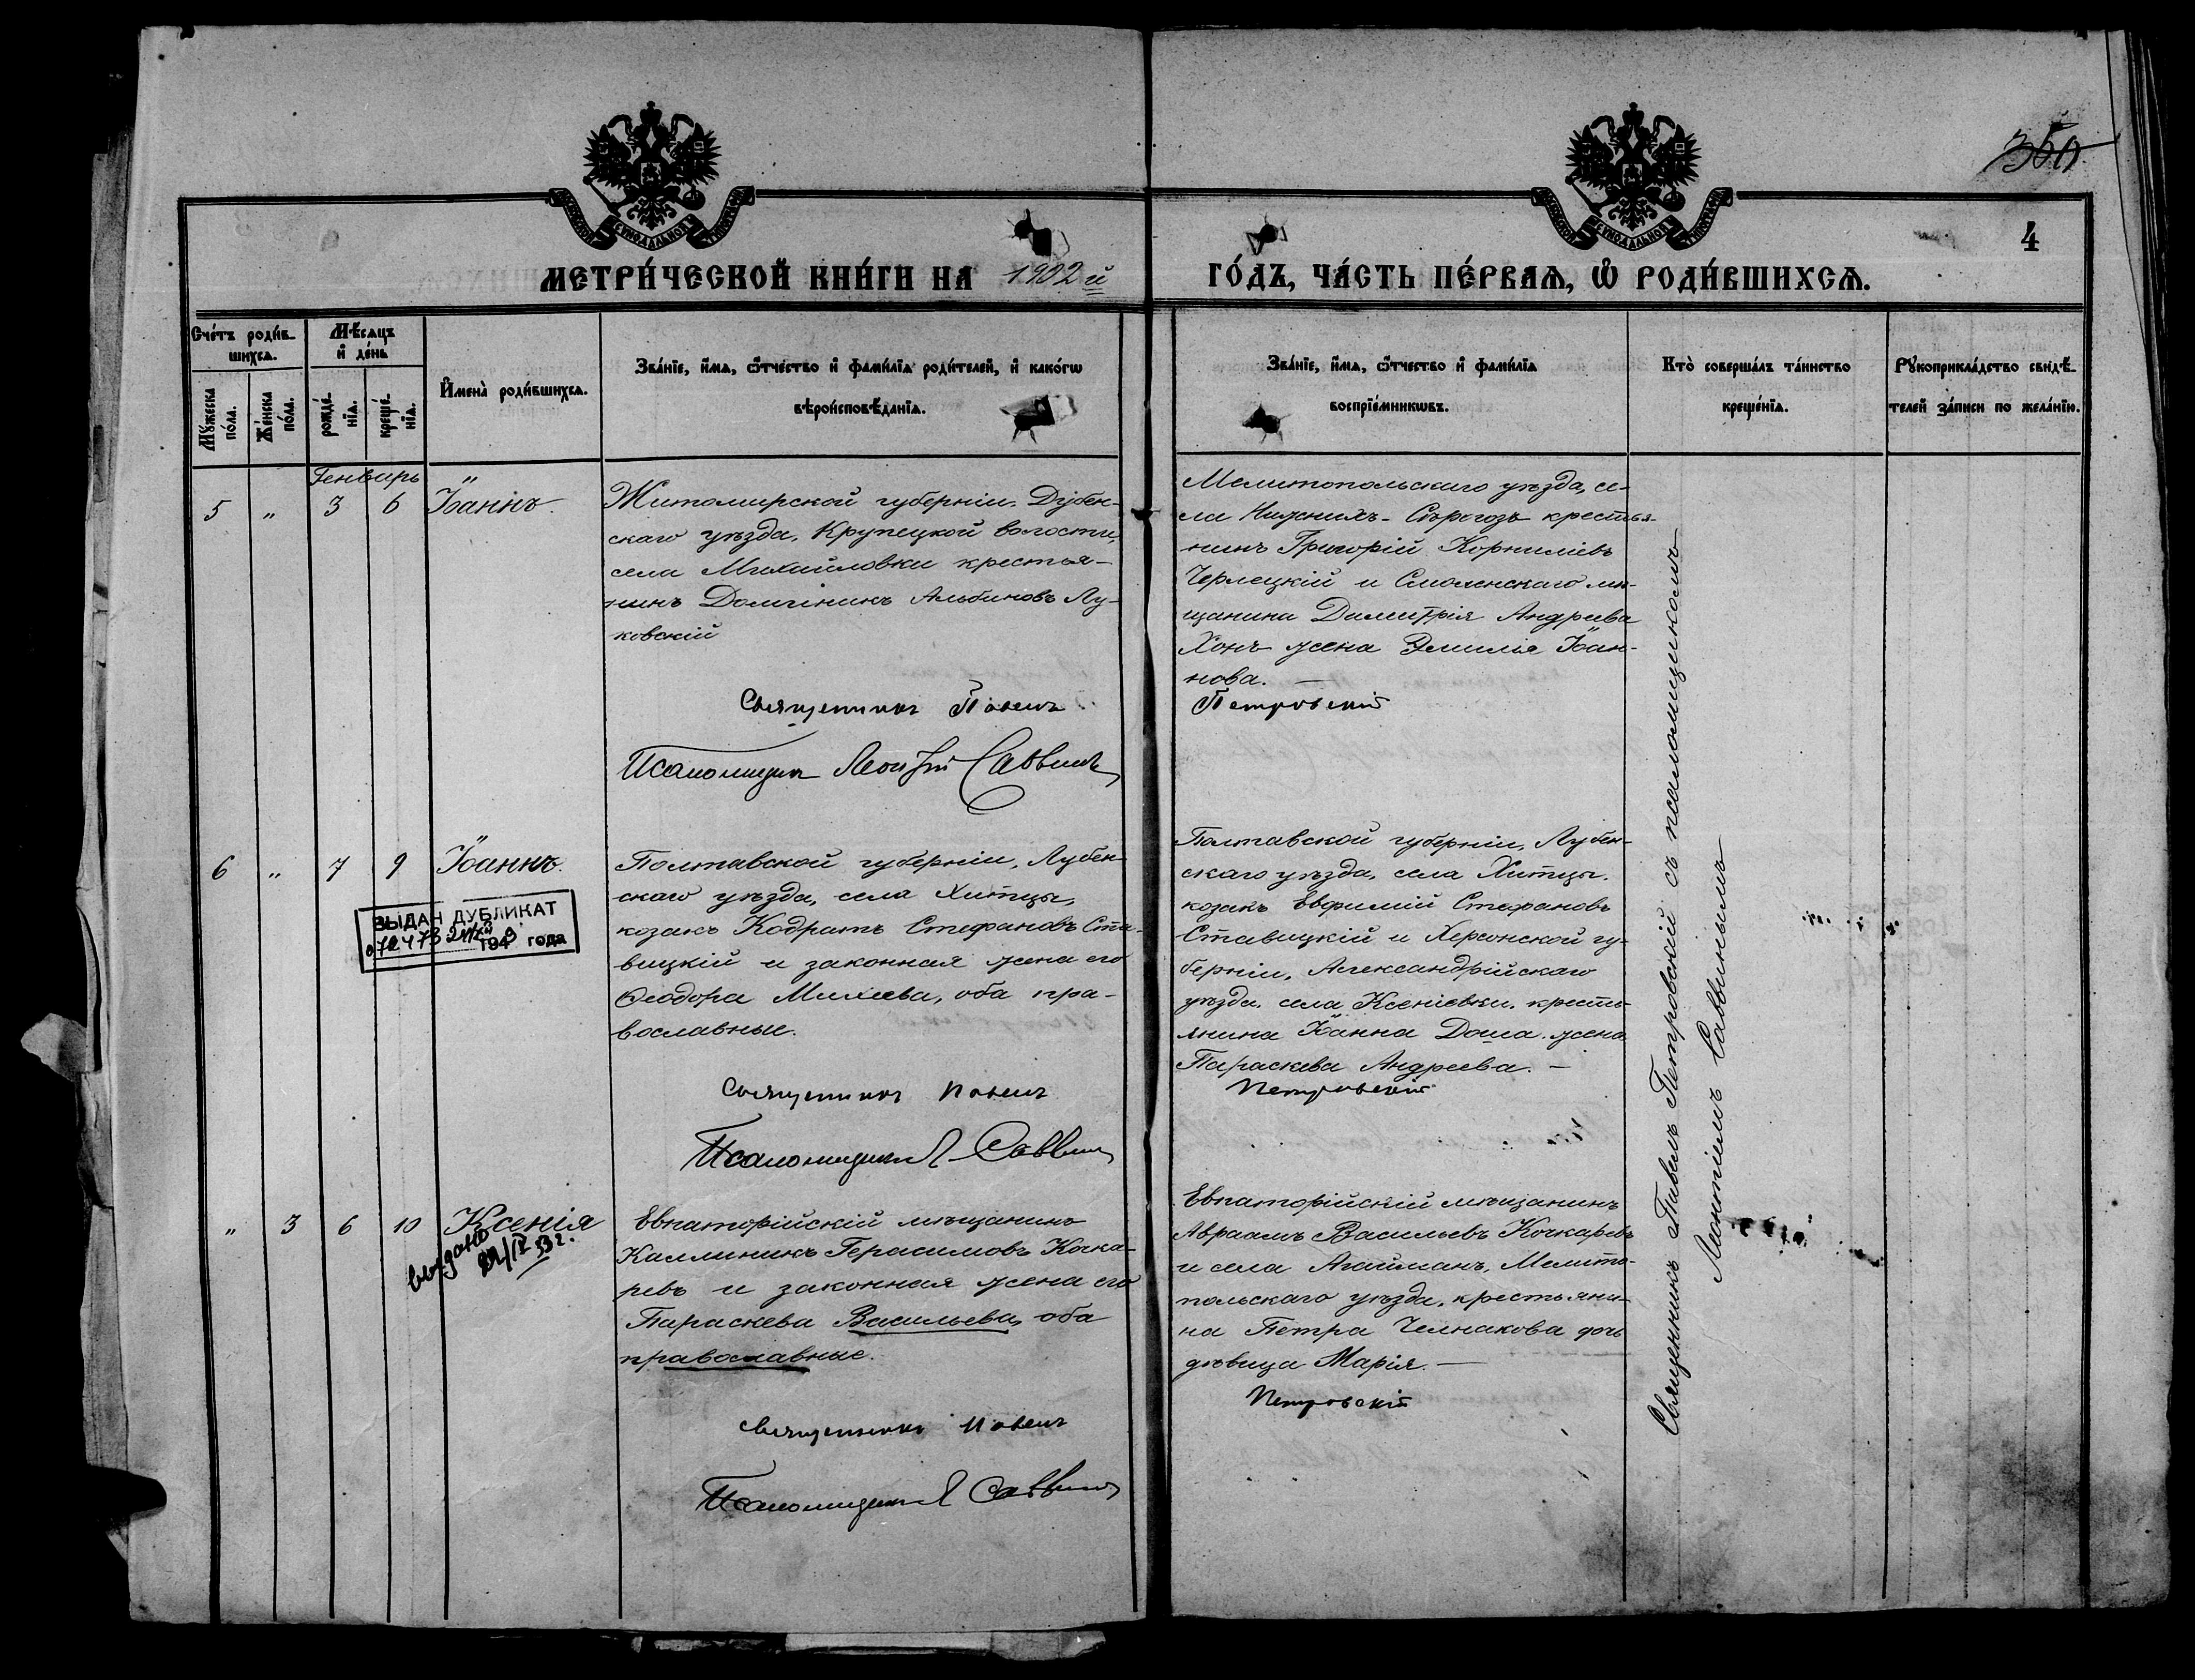 350
4
МЕТРИ́ЧЕСКОЙ КНИ́ГИ НА 1902 й
ГО́ДЪ, ЧА́СТЬ ПЕ́РВАѦ, Ѡ РОДИ́ВШИХСѦ.
Сче́тъ роди́в-
шихсѧ.
Мꙋ́жеска по́ла.
Же́нска по́ла.
Мѣ́сѧцъ
и де́нь
рожде́-
нїѧ.
креще́-
нїѧ.
Имена̀ роди́вшихсѧ.
Зва́нїе, и́мѧ, ѻ́тчество и фамѝлїѧ роди́телей, и како́гѡ
вѣроисповѣ́данїѧ.
Зва́нїе, и́мѧ, ѻ́тчество и фамѝлїѧ
воспрїе́мникѡвъ.
Кто̀ соверша́лъ та́инство
креще́нїѧ.
Рꙋкоприкла́дство свидѣ́-
телей за́писи по жела́нїю.
Генварь
5 " 3 6 Іоаннъ.
Житомирской губерніи, Дубен-
скаго уѣзда, Крупецкой волости,
села Михайловки крестья-
нинъ Доминикъ Альбиновъ Лу-
ковскій
Священникъ Павелъ
Псаломщикъ Леонтій Саввинъ
Мелитопольскаго уѣзда, се-
ла Нижнихъ-Сѣрогозъ крестья-
нинъ Григорій Корниліевъ
Черлецкій и Смоленскаго мѣ-
щанина Димитрія Андреева
Хонъ жена Эмилія Іоан-
нова. —
Петровскій
6 " 7 9 Іоаннъ.
ВЫДАН ДУБЛИКАТ
194 года
Полтавской губерніи, Лубен-
скаго уѣзда, села Хитцы,
козакъ Кодратъ Стефановъ Ста-
вицкій и законная жена его
Ѳеодора Михеева, оба пра-
вославные.
Священникъ Павелъ
Псаломщикъ Л Саввинъ
Полтавской губерніи, Лубен-
скаго уѣзда, села Хитцы.
козакъ Евфимій Стефановъ
Ставицкій и Херсонской гу-
берніи, Александрійскаго
уѣзда, села Ксеніевки, кресть-
янина Іоанна Доша жена
Параскева Андреева. —
Петровскій
" 3 6 10 Ксенія
выдано
22/IV 53 г.
Евпаторійскій мѣщанинъ
Каллиникъ Герасимовъ Кочка-
ревъ и законная жена его
Параскева Васильева, оба
православные.
Священникъ Павелъ
Псаломщикъ Л Саввинъ
Евпаторійскій мѣщанинъ
Авраамъ Васильевъ Кочкаревъ
и села Агайманъ, Мелито-
польскаго уѣзда, крестьяни-
на Петра Челнакова дочь
дѣвица Марія. —
Петровскій
Священникъ Павелъ Петровскій съ псаломщикомъ
Леонтіемъ Саввинымъ